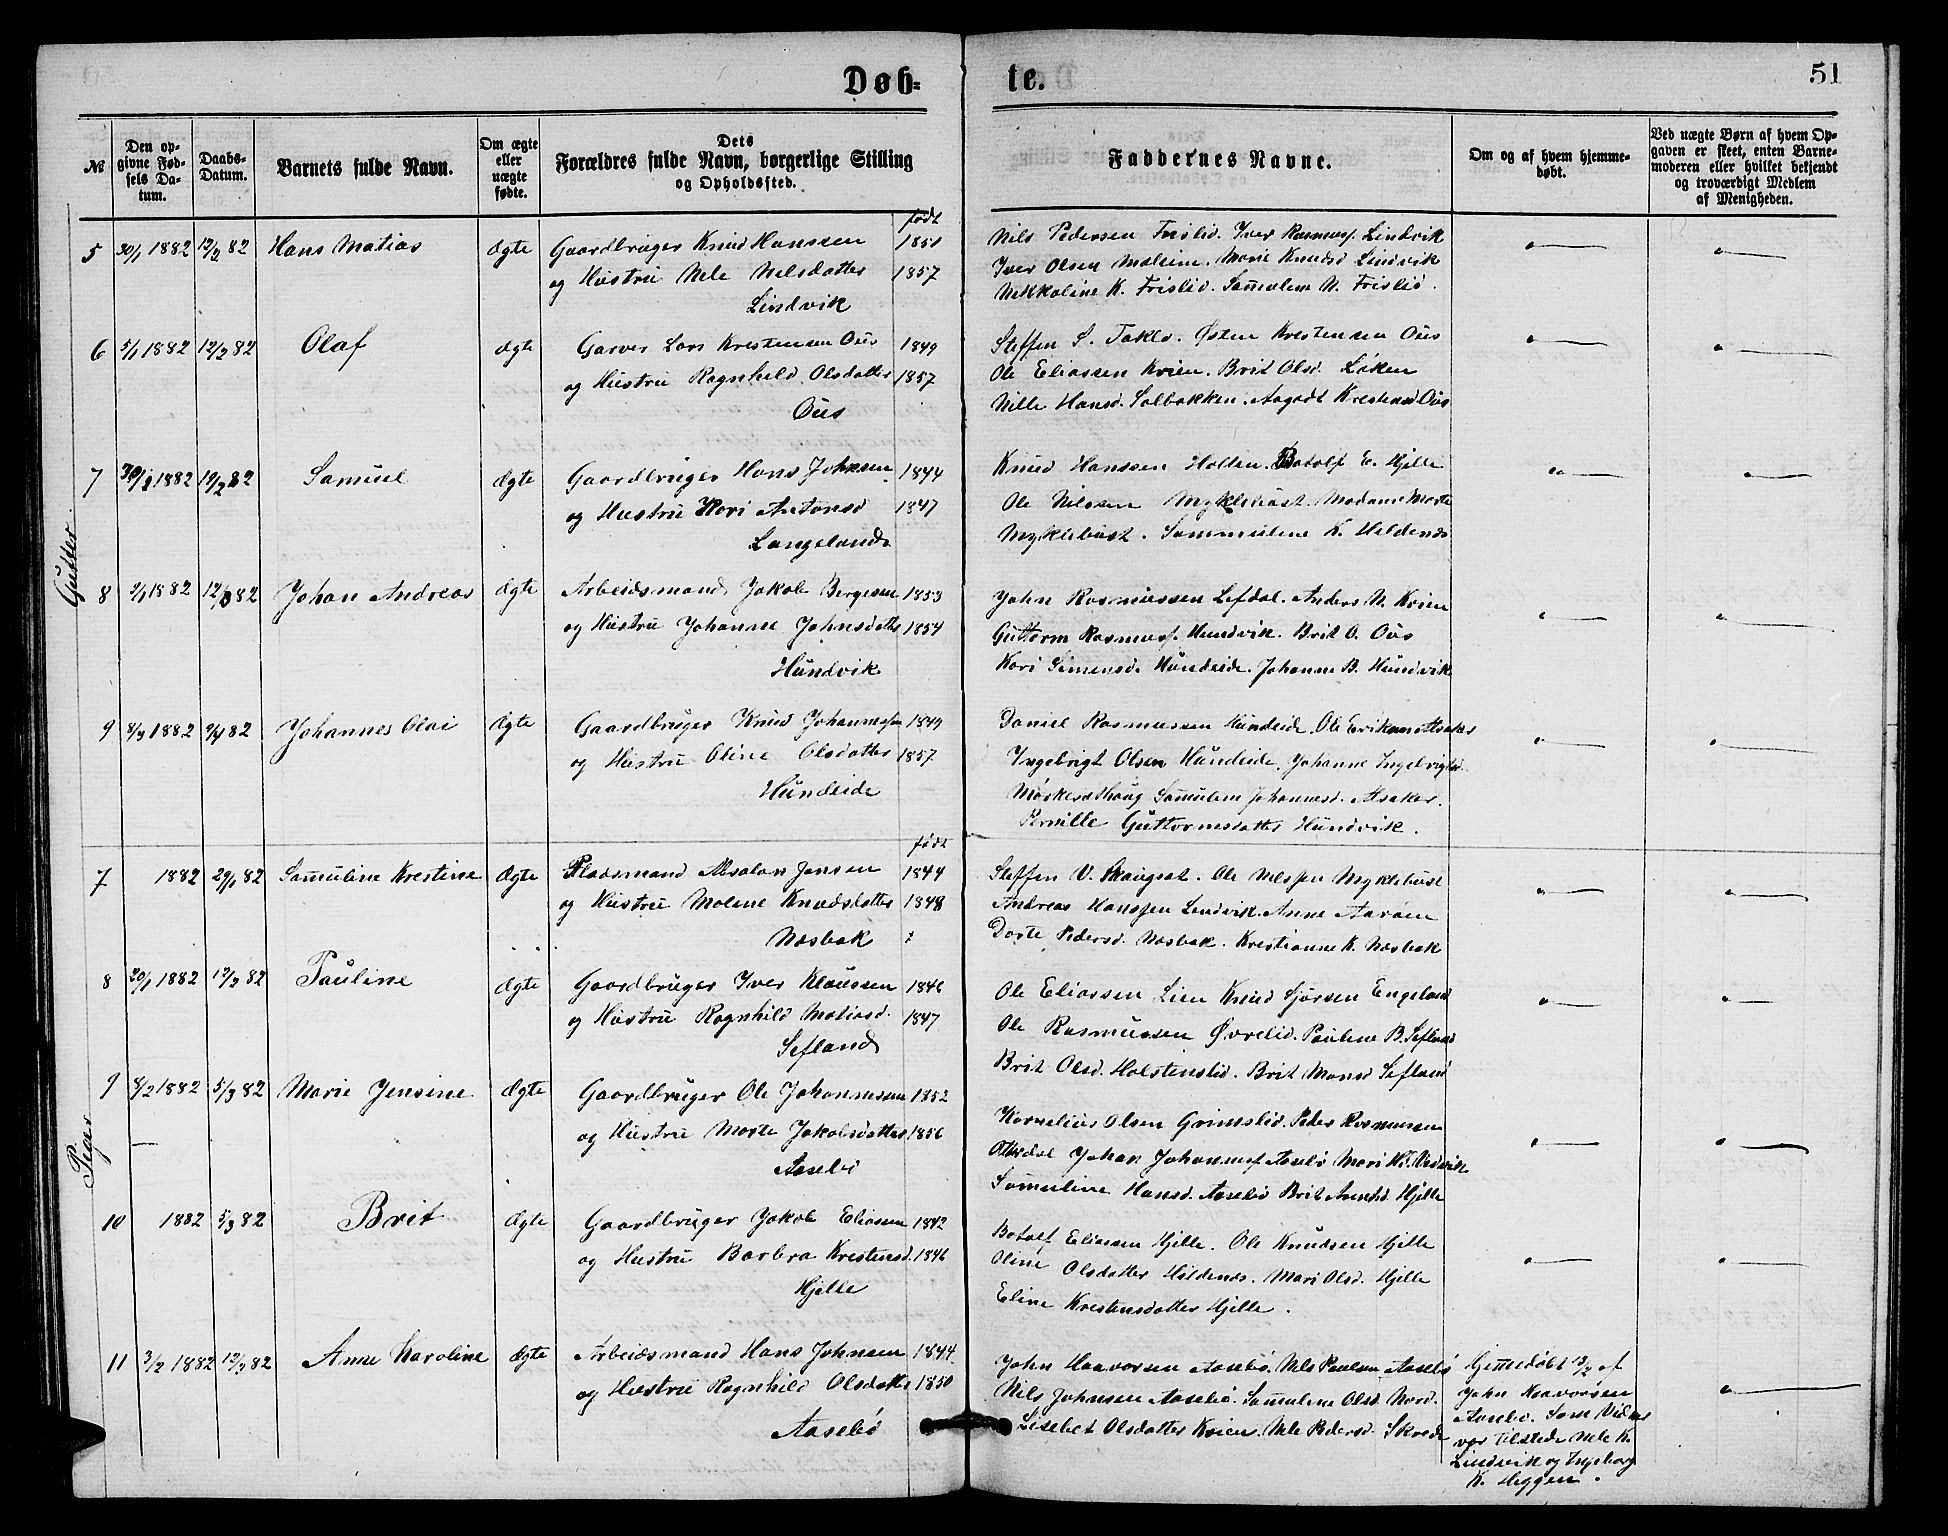 Døb-
te.
51
№
Den opgivne Fødsels Datum.
Daabs-Datum.
Barnets fulde Navn.
Om ægte eller uægte fødte.
Dets Forældres fulde Navn, borgerlige Stilling og Opholdssted.
Faddernes Navne.
Om og af hvem hjemmedøbt.
Ved uægte Børn af hvem Opgaven er skeet, enten Barnemoderen eller hvilket bekjendt og troværdigt Medlem af Menigheden.
Gutter.
født
5 30/1 1882 12/2 82 Hans Matias Ægte Gaardbruger Knud Hanssen 1851
og Hustru Nele Nelsdatter 1857
Lindvik
Nils Pedersen Frislid. Iver Rasmuss. Lindvik
Iver Olsen Maleine. Marie Knudsd Lindvik
Nikkoline K. Frislid. Samulene N. Frislid.
6 5/1 1882 12/2 82 Olaf Ægte Garver Lars Krestensen Ous 1849
og Hustru Ragnhild Olsdatter 1857
Ous
Steffen S. Taklo. Østen Krestensen Ous
Ole Eliassen Kvien. Brit Olsd. Løken
Nille Hansd. Solbakken. Aagodt Krestensd Ous
7 30/1 1882 19/2 82 Samuel Ægte Gaardbruger Hans Johnsen 1844
og Hustru Kari Antonsd 1847
Langeland
Knud Hanssen Holten. Botolf E. Hjelle
Ole Nilssen Myklebust. Madame Marte
Myklebust. Sammulene K. Hildenes
8 2/1 1882 12/3 82 Johan Andreas Ægte Arbeidsmand Jakob Bergesen 1853
og Hustru Johanne Johnsdatter 1854
Hundvik
John Rasmussen Lefdal. Anders N. Kvien
Guttorm Rasmuss. Hundvik. Brit O. Ous
Kari Simensd. Hundeide. Johanne B. Hundvik
9 8/3 1882 9/4 82 Johannes Olai Ægte Gaardbruger Knud Johannessen 1849
og Hustru Oline Olsdatter 1857
Hundeide
Daniel Rasmussen Hundeide. Ole Eriksen Alsaker
Ingebrigt Olsen Hundeide, Johanne Ingebrigtsd.
Mørkesethaug Samulene Johannesd. Alsaker.
Pernille Guttormsdatter Hundvik.
Piger
født
7 1882 29/1 82 Samuline Krestine Ægte Pladsmand Absalon Jansen 1844
og Hustru Malene Knudsdatter 1848
Nosbak
Steffen V. Skaugset. Ole Nelssen Myklebust
Andreas Hanssen Lindvik. Anne Aarøen
Dorte Pedersd. Nosbak. Krestianne K. Nosbak
8 20/1 1882 12/2 82 Pauline Ægte Gaardbruger Iver Klaussen 1846
og Hustru Ragnhild Matiasd. 1847
Sefland
Ole Eliassen Lien Knud Sjursen Engeland
Ole Rasmussen Øvrelid. Paulene B. Sefland
Brit Olsd. Holstenslid. Brit Monsd Sefland
9 8/2 1882 5/3 82 Marie Jensine Ægte Gaardbruger Ole Johannessen 1852
og Hustru Marte Jakobsdatter 1856
Aasebø
Kornelius Olsen Grimslid. Peder Rasmussen
Otterdal Johan Johanness Aasebø Mari Vedvik
Samuline Hansd. Aasebø Brit Hjelle
10 1882 5/3 82 Brit Ægte Gaardbruger Jakob Eliassen 1842
og Hustru Barbra Krestensd. 1846
Hjelle
Botolf Eliassen Hjelle. Ole Knudsen Hjelle
Oline Olsdatter Hildenes. Mari Olsd. Hjelle
Eline Krestensdatter Hjelle.
11 3/2 1882 12/3 82 Anne Karoline Ægte Arbeidsmand Hans Johnsen 1844
og Hustru Ragnhild Olsdatter 1850
Aasebø
John Haavorsen Aasebø. Nils Paulsen Aasebø
Nils Johnsen Aasebø. Samulene Olsd. Nord.
Lisebet Olsdatter Kvien. Nele Pedersd. Skrede
Hjemmedøbt 13/2 af
John Haavorsen
Aasebø. Som Vidner
var tilstede Nele K.
Lindvik og Ingeborg
K. Heggen.